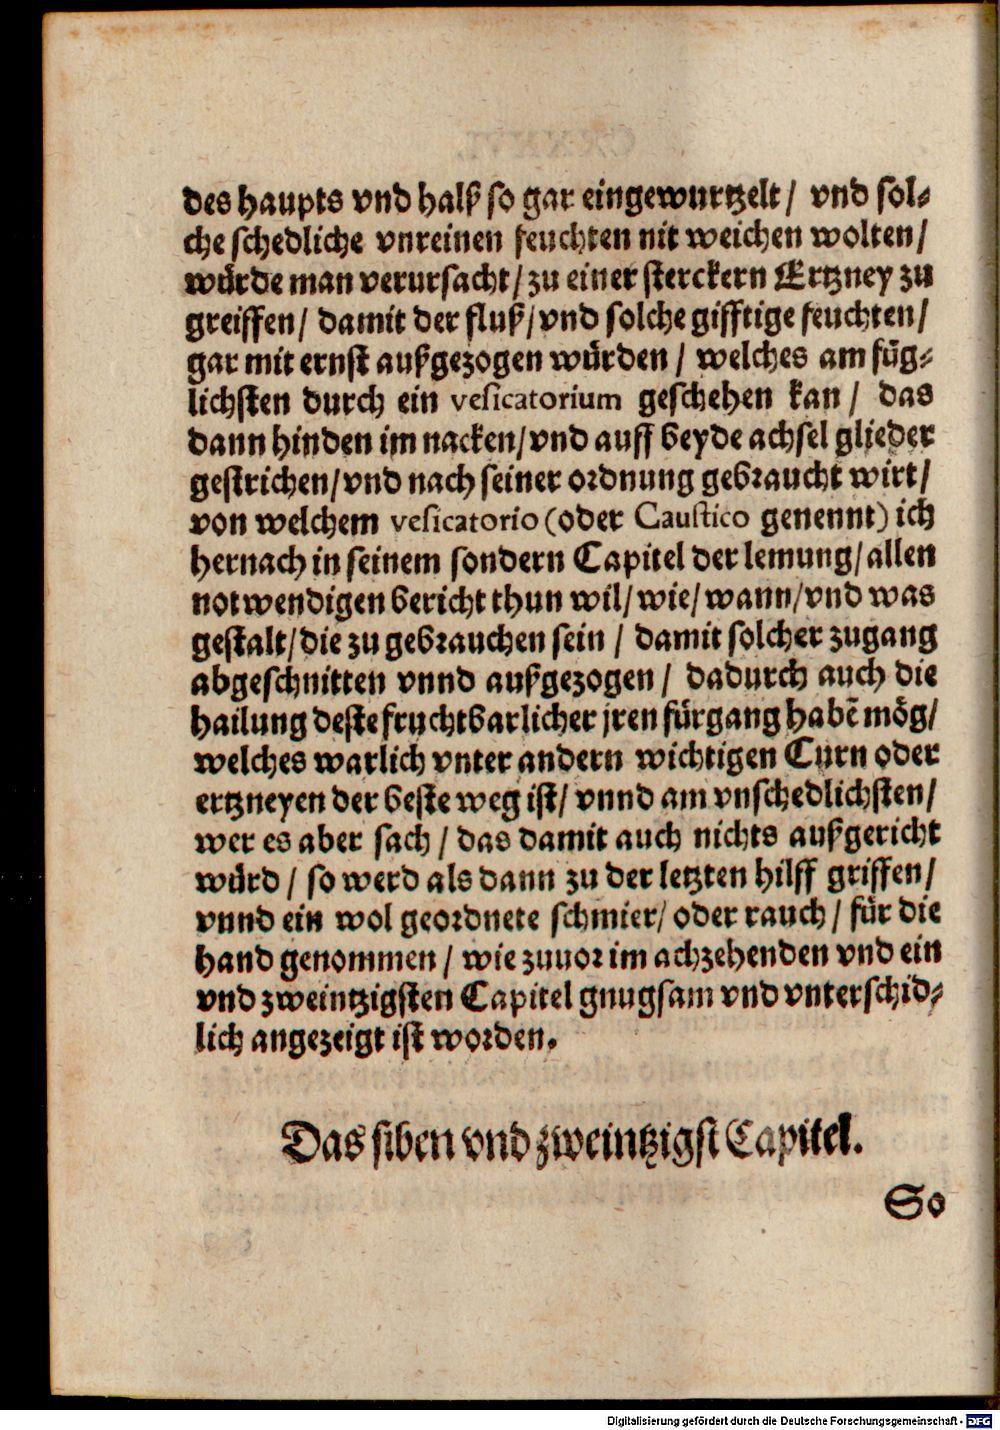 des haupts vnd halß so gar eingewurtzelt / vnd sol⸗
che schedliche vnreinen feuchten nit weichen wolten /
würde man verursacht / zu einer sterckern Ertzney zu
greiffen / damit der fluß / vnd solche gifftige feuchten /
gar mit ernst außgezogen würden / welches am füg⸗
lichsten durch ein vesicatorium geschehen kan / das
dann hinden im nacken / vnd auff beyde achsel glieder
gestrichen / vnd nach seiner ordnung gebraucht wirt /
von welchem vesicatorio (oder Caustico genennt) ich
hernach in seinem sondern Capitel der lemung / allen
notwendigen bericht thun wil / wie / wann / vnd was
gestalt / die zu gebrauchen sein / damit solcher zugang
abgeschnitten vnnd außgezogen / dadurch auch die
hailung deste fruchtbarlicher jren fürgang habẽ mög /
welches warlich vnter andern wichtigen Curn oder
ertzneyen der beste weg ist / vnnd am vnschedlichsten /
wer es aber sach / das damit auch nichts außgericht
würd / so werd als dann zu der letzten hilff griffen /
vnnd ein wol geordnete schmier / oder rauch / für die
hand genommen / wie zuuor im achzehenden vnd ein
vnd zweintzigsten Capitel gnugsam vnd vnterschid⸗
lich angezeigt ist worden.
Das siben vnd zweintzigst Capitel.
So
Digitalisierung gefördert durch die Deutsche Forschungsgemeinschaft - DFG